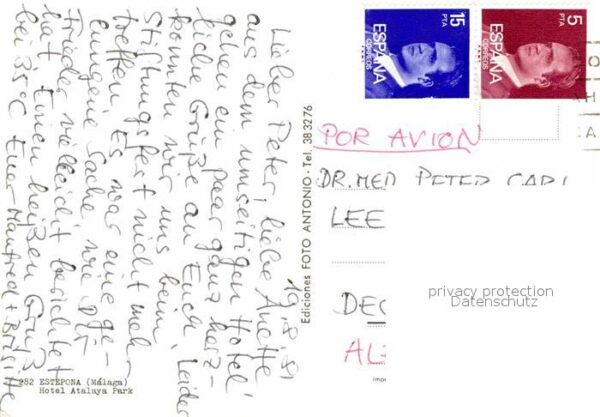 19.8.81
Lieber Peter, liebe Anette
aus dem umseitigen Hotel
gehen ein paar ganz herz-
liche Grüße an Euch. Leider
konnten wir uns beim
Stiftungsfest nicht mehr
treffen. Es war eine ge-
lungene Sache wie
Frieder vielleicht berichtet
hat. Einen heißen Gruß
bei 35°C Euer Manfred + Brigitte
282 ESTEPONA (Málaga)
Hotel Atalaya Park
Ediciones FOTO ANTONIO - Tel. 383276
15 PTA
ESPAÑA
CORREOS
5 PTA
ESPAÑA
CORREOS
POR AVION
DR. MED PETER CARL
LEE
privacy protection
Datenschutz